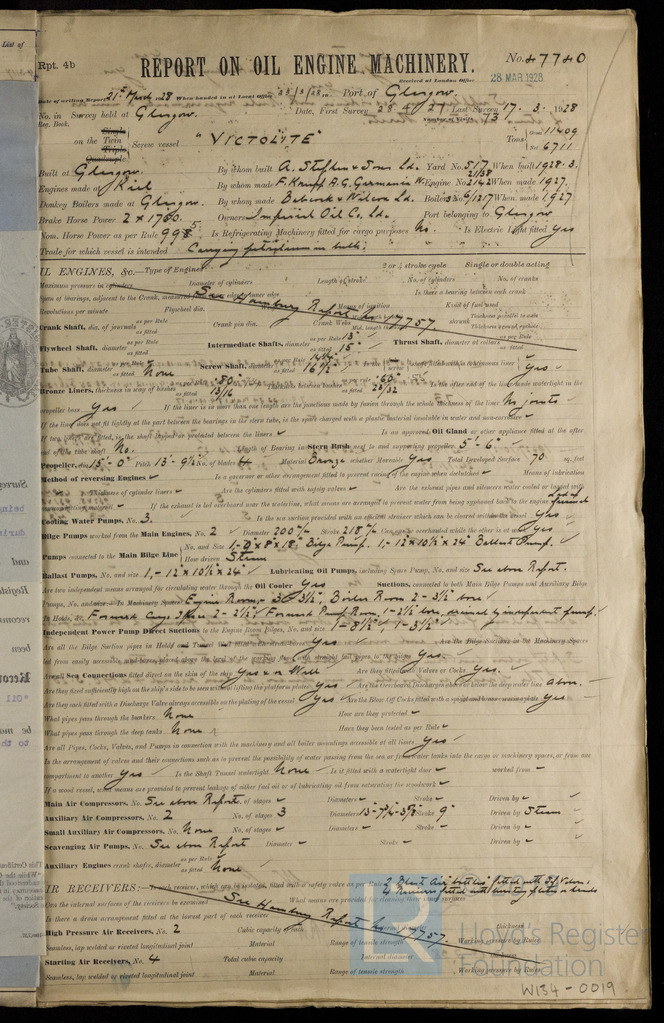 Rpt. 4b
REPORT ON OIL ENGINE MACHINERY.
No. 47740
Received at London Office 28 MAR 1928
Date of writing Report 21st March 1928 When handed in at Local Office Port of Glasgow.
No. in Survey held at Glasgow. Date, First Survey Last Survey 17. 3. 1928
Reg. Book. Number of Visits 73
Single
on the Twin Screw vessel "VICTOLITE" Tons Gross 11409
Triple
Quadruple
Net 6711
Built at Glasgow. By whom built A. Stephen & Sons Ld. Yard No. 517 When built 1928.3.
Engines made at Kiel By whom made F. Krupp A.G. Germania W. Engine No. When made 1927.
Donkey Boilers made at Glasgow. By whom made Babcock & Wilcox Ld. Boiler No. When made 1927.
Brake Horse Power 2 x 1750 Owners Imperial Oil Co. Ld. Port belonging to Glasgow
Nom. Horse Power as per Rule Is Refrigerating Machinery fitted for cargo purposes No. Is Electric Light fitted Yes
Trade for which vessel is intended Carrying petroleum in bulk.
OIL ENGINES, &c.—Type of Engines 2 or 4 stroke cycle Single or double acting
Maximum pressure in cylinders Diameter of cylinders Length of stroke No. of cylinders No. of cranks
Span of bearings, adjacent to the Crank, measured Is there a bearing between each crank
See Hamburg Report No 17757.
Revolutions per minute Flywheel dia. Means of ignition Kind of fuel used
Crank Shaft, dia. of journals as per Rule as fitted Crank pin dia. Crank Webs
Flywheel Shaft, as per Rule as fitted Intermediate Shafts, diameter as per Rule 13" as fitted 15" Thrust Shaft, diameter at collars as per Rule as fitted
Tube Shaft, as per Rule as fitted None Screw Shaft, as fitted 16½" Is the shaft fitted with a continuous liner Yes
Bronze Liners, thickness in way of bushes as fitted 13/16 Thickness between bushes as fitted Is the after end of the liner made watertight in the
propeller boss Yes If the liner is in more than one length are the junctions made by fusion through the whole thickness of the liner No joints
If the liner does not fit tightly at the part between the bearings in the stern tube, is the space charged with a plastic material insoluble in water and non-corrosive
If two liners are fitted, is the shaft lapped or protected between the liners Is an approved Oil Gland or other appliance fitted at the after
end of the tube shaft No. Length of Bearing in Stern Bush next to and supporting propeller 5'-6"
Propeller, dia. 15'-0" Pitch 13'-9½" No. of blades 4 Material Bronze whether Moveable Yes Total Developed Surface 70 sq. feet
Method of reversing Engines Is a governor or other arrangement fitted to prevent racing of the engine when declutched Means of lubrication
Thickness of cylinder liners Are the cylinders fitted with safety valves Are the exhaust pipes and silencers water cooled or lagged with
non-conducting material If the exhaust is led overboard near the waterline, what means are arranged to prevent water from being syphoned back to the engine Led up funnel
Cooling Water Pumps, No. 3. Is the sea suction provided with an efficient strainer which can be cleared within the vessel Yes
Bilge Pumps worked from the Main Engines, No. 2 Diameter 200 m/m Stroke 218 m/m Can one be overhauled while the other is at work Yes
Pumps connected to the Main Bilge Line No. and Size 1-9 x 8 x 18" Bilge Pump. 1,-12" x 10½" x 24" Ballast Pump. How driven Steam
Ballast Pumps, No. and size 1,-12" x 10½" x 24" Lubricating Oil Pumps, including Spare Pump, No. and size See above Report.
Are two independent means arranged for circulating water through the Oil Cooler Yes Suctions, connected to both Main Bilge Pumps and Auxiliary Bilge
Pumps, No. and size:—In Machinery Spaces Engine Room - 3 @ 3½", Boiler Room 2 - 3½" bore
In Holds, &c. Forward Cargo Space 2 - 2½" Forward Pump Room, 1-2½" bore, drained by independent pump.
Independent Power Pump Direct Suctions to the Engine Room Bilges, No. and size 1 - 8½", 1 - 3½"
Are all the Bilge Suction pipes in Holds and Yes Are the Bilge Suctions in the Machinery Spaces
led from easily accessible mud-boxes, placed above the level of the working floor, with straight tail pipes to the bilges Yes.
Are all Sea Connections fitted direct on the skin of the ship Yes Are they fitted with Valves or Cocks Yes.
Are they fixed sufficiently high on the ship's side to be seen without lifting the platform plates Yes Are the Overboard Discharges above or below the deep water line Above.
Are they each fitted with a Discharge Valve always accessible on the plating of the vessel Yes Are the Blow Off Cocks fitted with a spigot and brass covering plate Yes
What pipes pass through the bunkers None How are they protected
What pipes pass through the deep tanks None Have they been tested as per Rule
Are all Pipes, Cocks, Valves, and Pumps in connection with the machinery and all boiler mountings accessible at all times Yes
Is the arrangement of valves and their connections such as to prevent the possibility of water passing from the sea or from water tanks into the cargo or machinery spaces, or from one
compartment to another Yes Is the Shaft Tunnel watertight None Is it fitted with a watertight door worked from
If a wood vessel, what means are provided to prevent leakage of either fuel oil or of lubricating oil from saturating the woodwork
Main Air Compressors, No. See above Report No. of stages Diameters Stroke Driven by
Auxiliary Air Compressors, No. 2 No. of stages 3 Diameters Stroke 9" Driven by Steam
Small Auxiliary Air Compressors, No. None No. of stages Diameters Stroke Driven by
Scavenging Air Pumps, No. See above Report Diameter Stroke Driven by
Auxiliary Engines crank shafts, diameter as per Rule as fitted None
AIR RECEIVERS:—Is each receiver, which can be isolated, fitted with a safety valve as per Rule
Can the internal surfaces of the receivers be examined What means are provided for cleaning their inner surfaces
Is there a drain arrangement fitted at the lowest part of each receiver
See Hamburg Report No 17757.
High Pressure Air Receivers, No. 2 Cubic capacity of each Internal diameter thickness
Seamless, lap welded or riveted longitudinal joint Material Range of tensile strength Working pressure by Rules
Starting Air Receivers, No. 4 Total cubic capacity Internal diameter thickness
Seamless, lap welded or riveted longitudinal joint Material Range of tensile strength Working pressure by Rules
Lloyd's Register
Foundation
W134-0019